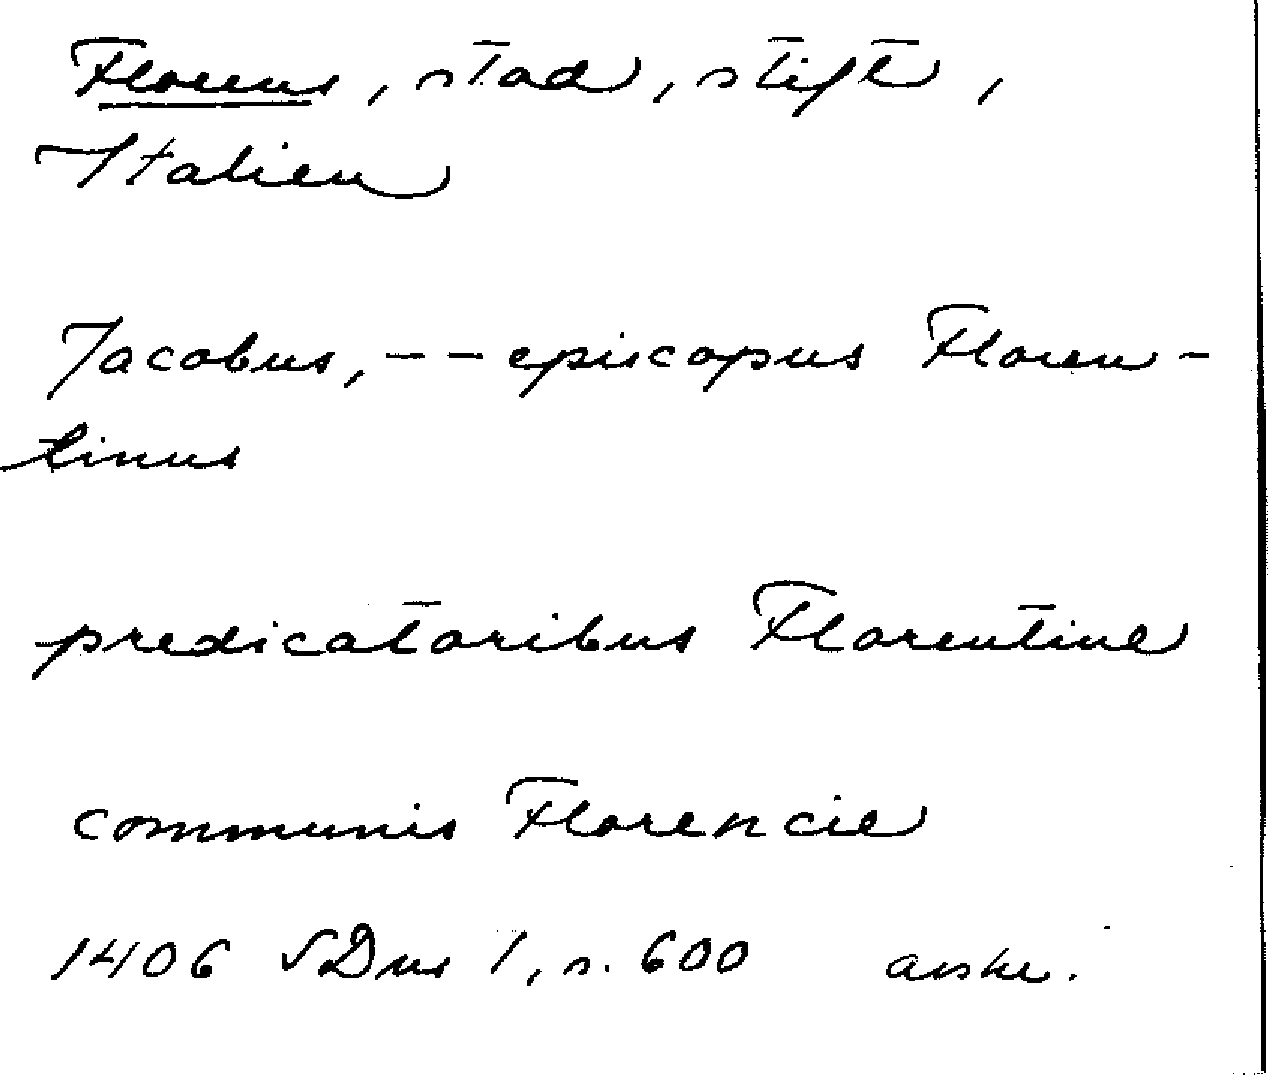 Florens, stad, stift,
Italien
Jacobus, -- episcopus Floren-
tinus
predicatoribus Florentine
communis Florencie
1406 SDns 1, s. 600 avskr.